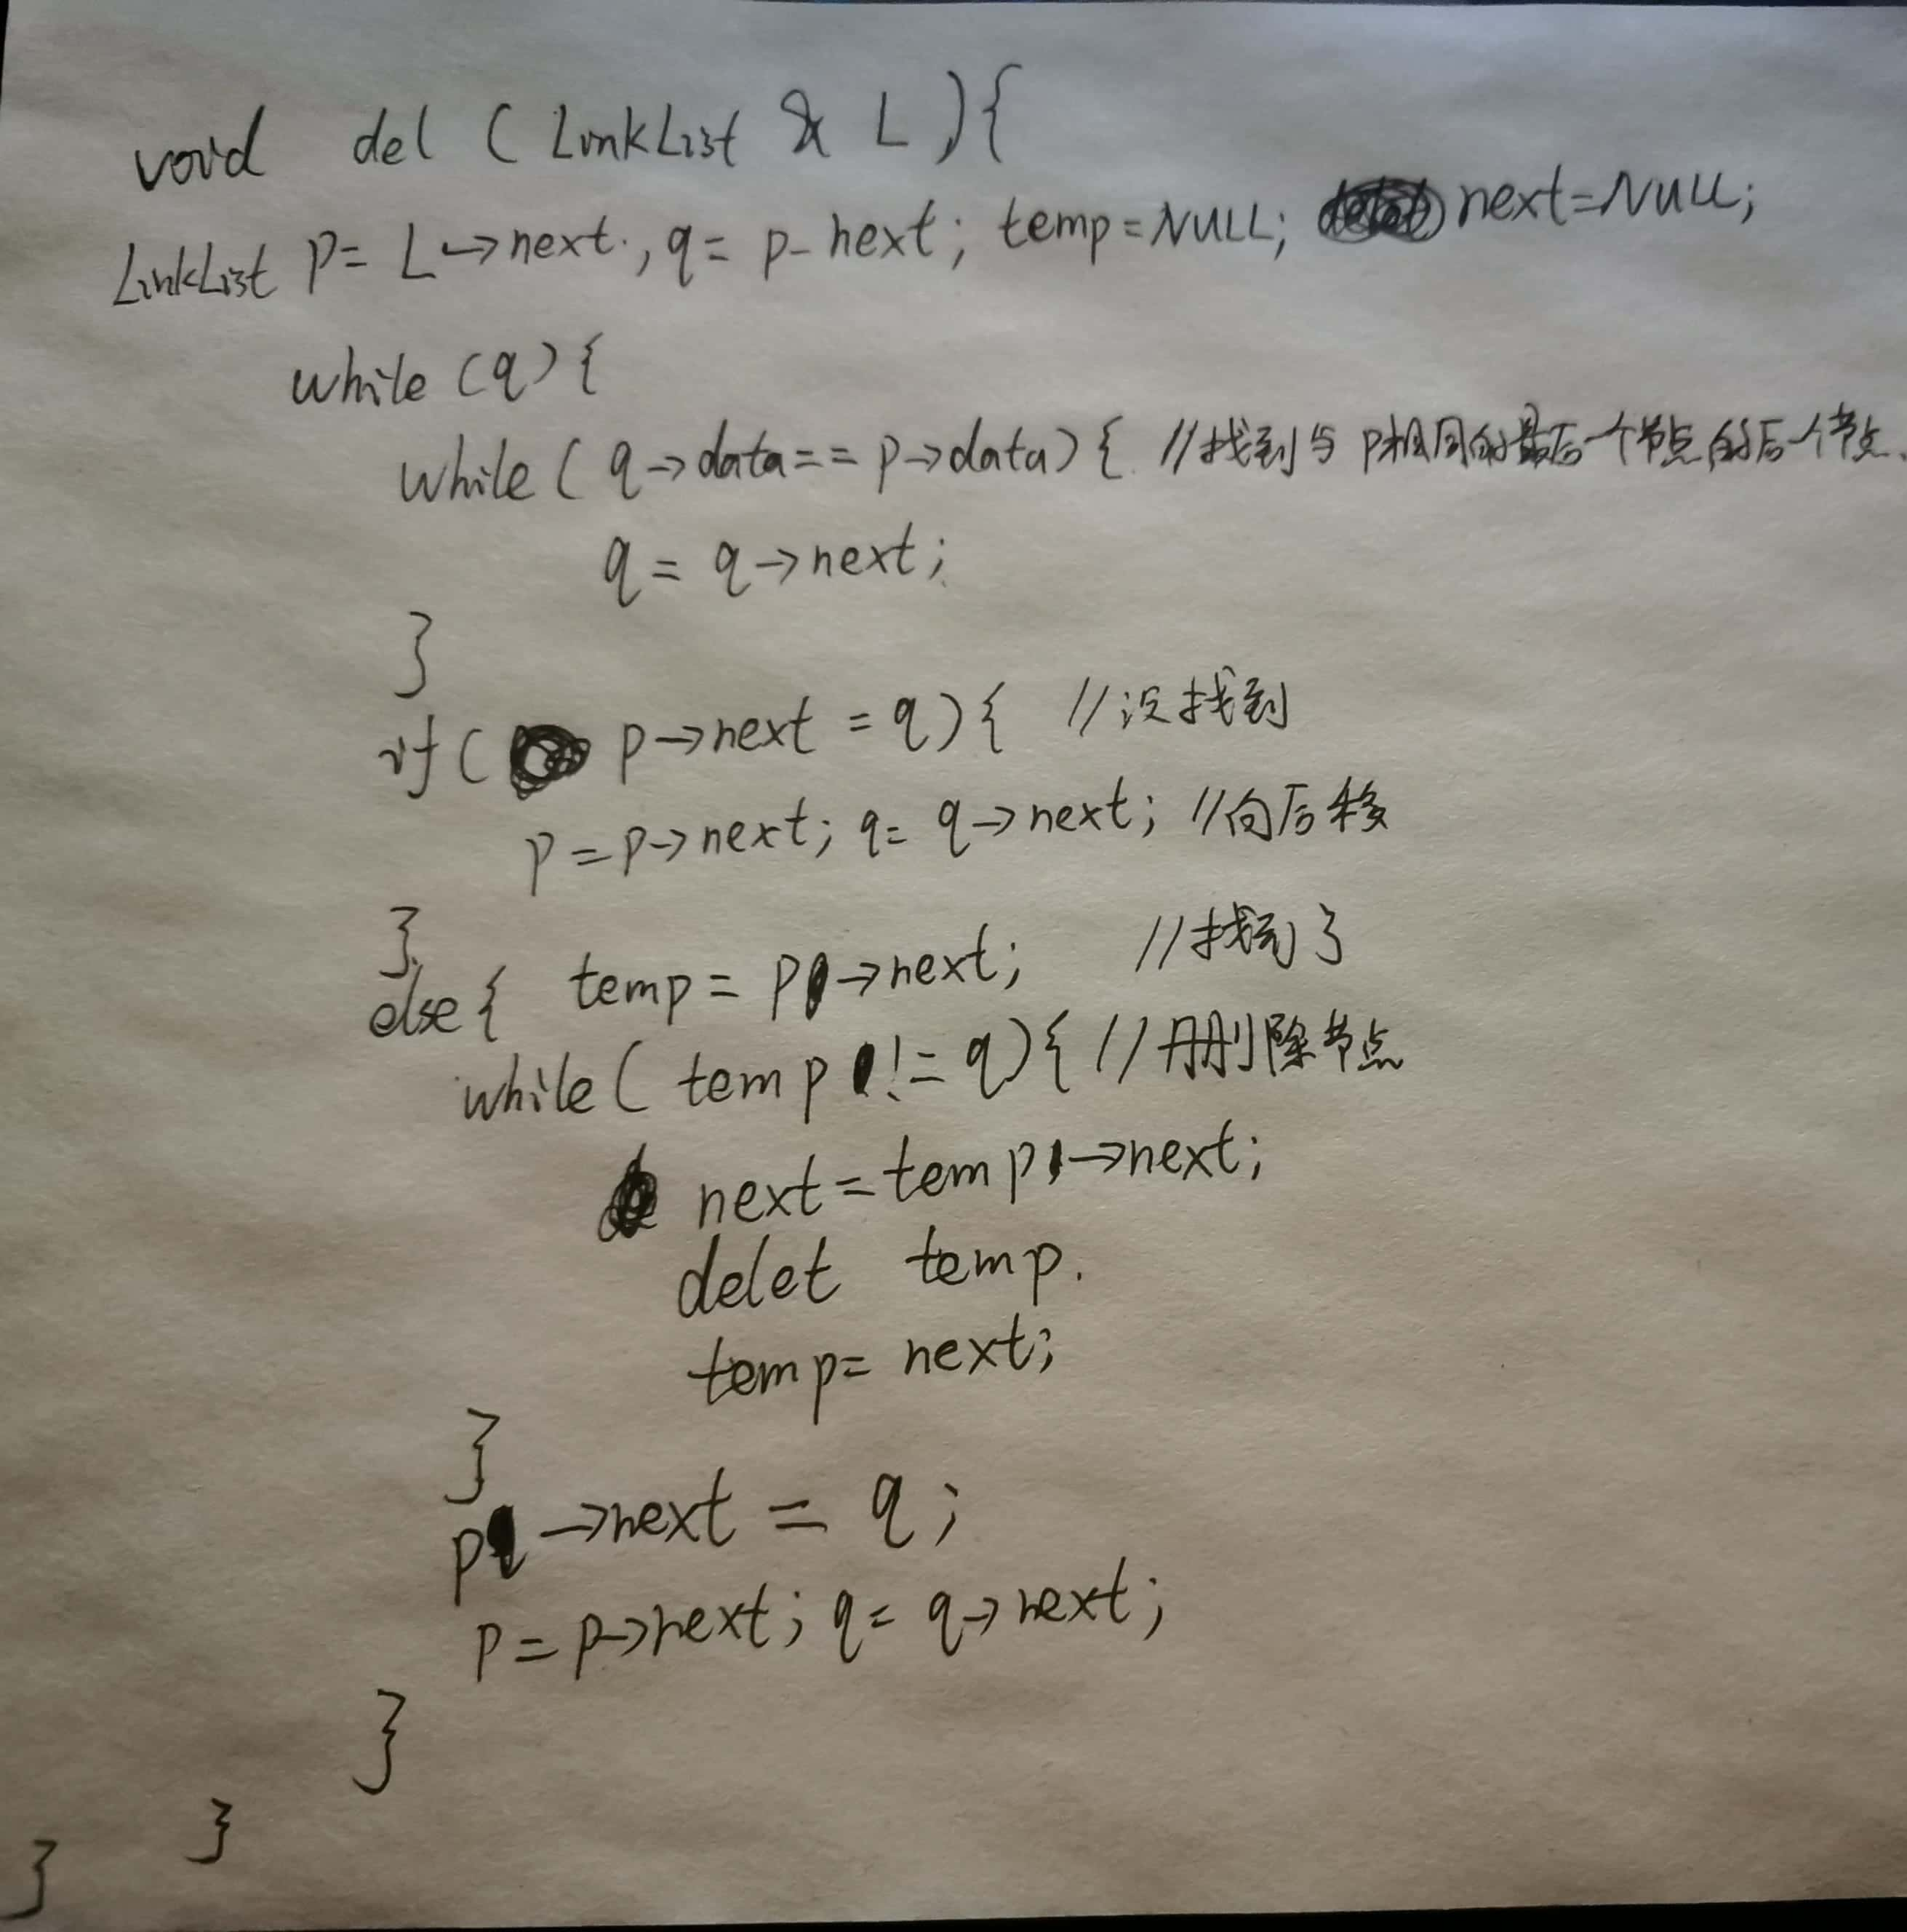 void del ( LinkList & L ){
LinkList p= L->next., q= p-next; temp=NULL; next=NULL;
while (q) {
while ( q->data== p->data) { //找到与p相同的最后一个节点的后一个节点.
q = q->next;
}
if ( p->next = q) { //没找到
p=p->next; q= q->next; //向后移
}
else { temp= p->next; //找到了
while ( temp != q) { //删除节点
next=temp->next;
delet temp.
temp= next;
}
p->next = q;
p=p->next; q= q->next;
}
}
}